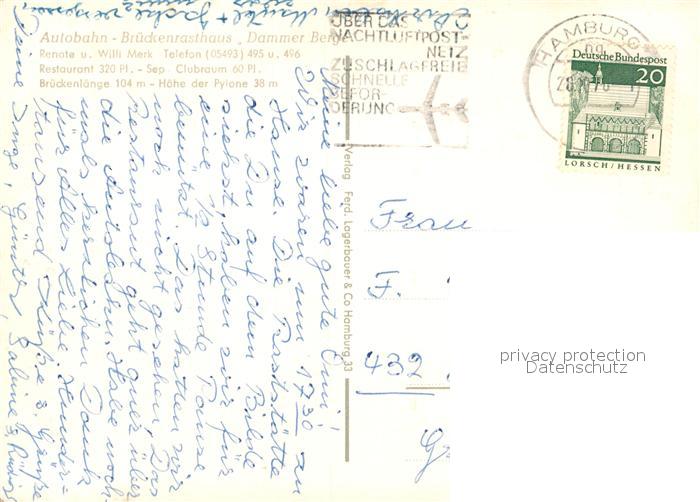 Autobahn - Brückenrasthaus "Dammer Berge"
Renate u. Willi Merk Telefon (05493) 495 u. 496
Restaurant 320 Pl. - Sep. Clubraum 60 Pl.
Brückenlänge 104 m - Höhe der Pylone 38 m
ÜBER DAS
NACHTLUFTPOST-
NETZ
ZUSCHLAGFREIE
SCHNELLE
BEFÖR-
DERUNG
HAMBURG
Deutsche Bundespost
20
LORSCH/HESSEN
Verlag Ferd. Lagerbauer & Co Hamburg 33
Meine liebe gute Omi!
Wir waren um 17.30 zu
Hause. Die Raststätte
die Du auf dem Bilde
siehst, haben wir für
eine ½ Stunde Pause
benutzt. Das hatten wir
noch nicht gesehen. Das
Restaurant geht quer über
die Autobahn. Habe noch-
mals herzlichen Dank
für alles Liebe. Hunder-
tausend Küße & Grüße
Deine Inge, Günter, Sabine &
Frau
F.
432
privacy protection
Datenschutz